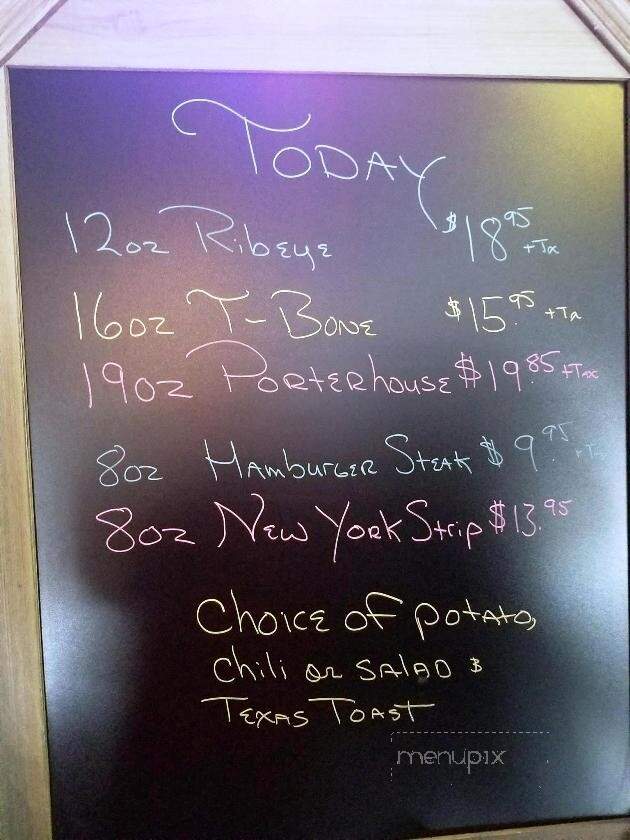 Today
12oz Ribeye $18.95 +Tx
16oz T-Bone $15.95 +Tx
19oz Porterhouse $19.85 +Tax
8oz Hamburger Steak $9.95 +Tx
8oz New York Strip $13.95
Choice of potato,
chili or salad &
Texas Toast
menupix